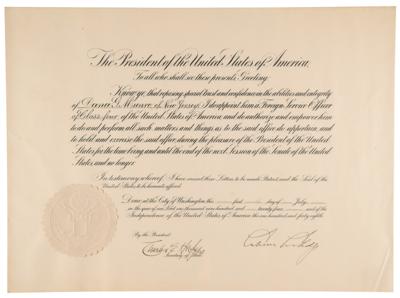 The President of the United States of America,
To all who shall see these presents, Greeting:
Know ye, that reposing special trust and confidence in the abilities and integrity
of Dana G. Munro, of New Jersey, I do appoint him a Foreign Service Officer
of Class four, of the United States of America, and do authorize and empower him
to do and perform all such matters and things as to the said office do appertain, and
to hold and exercise the said office, during the pleasure of the President of the United
States for the time being and until the end of the next Session of the Senate of the United
States, and no longer.
In testimony whereof, I have caused these Letters to be made Patent, and the Seal of the
United States to be hereunto affixed.
Done at the City of Washington this first day of July,
in the year of our Lord one thousand nine hundred and twenty-four and of the
Independence of the United States of America the one hundred and forty-eighth.
By the President:
Calvin Coolidge
Charles E. Hughes
Secretary of State.